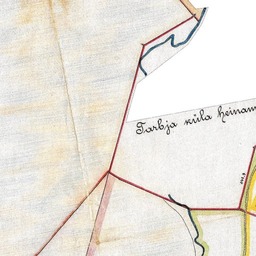 Tarbja küla heinam